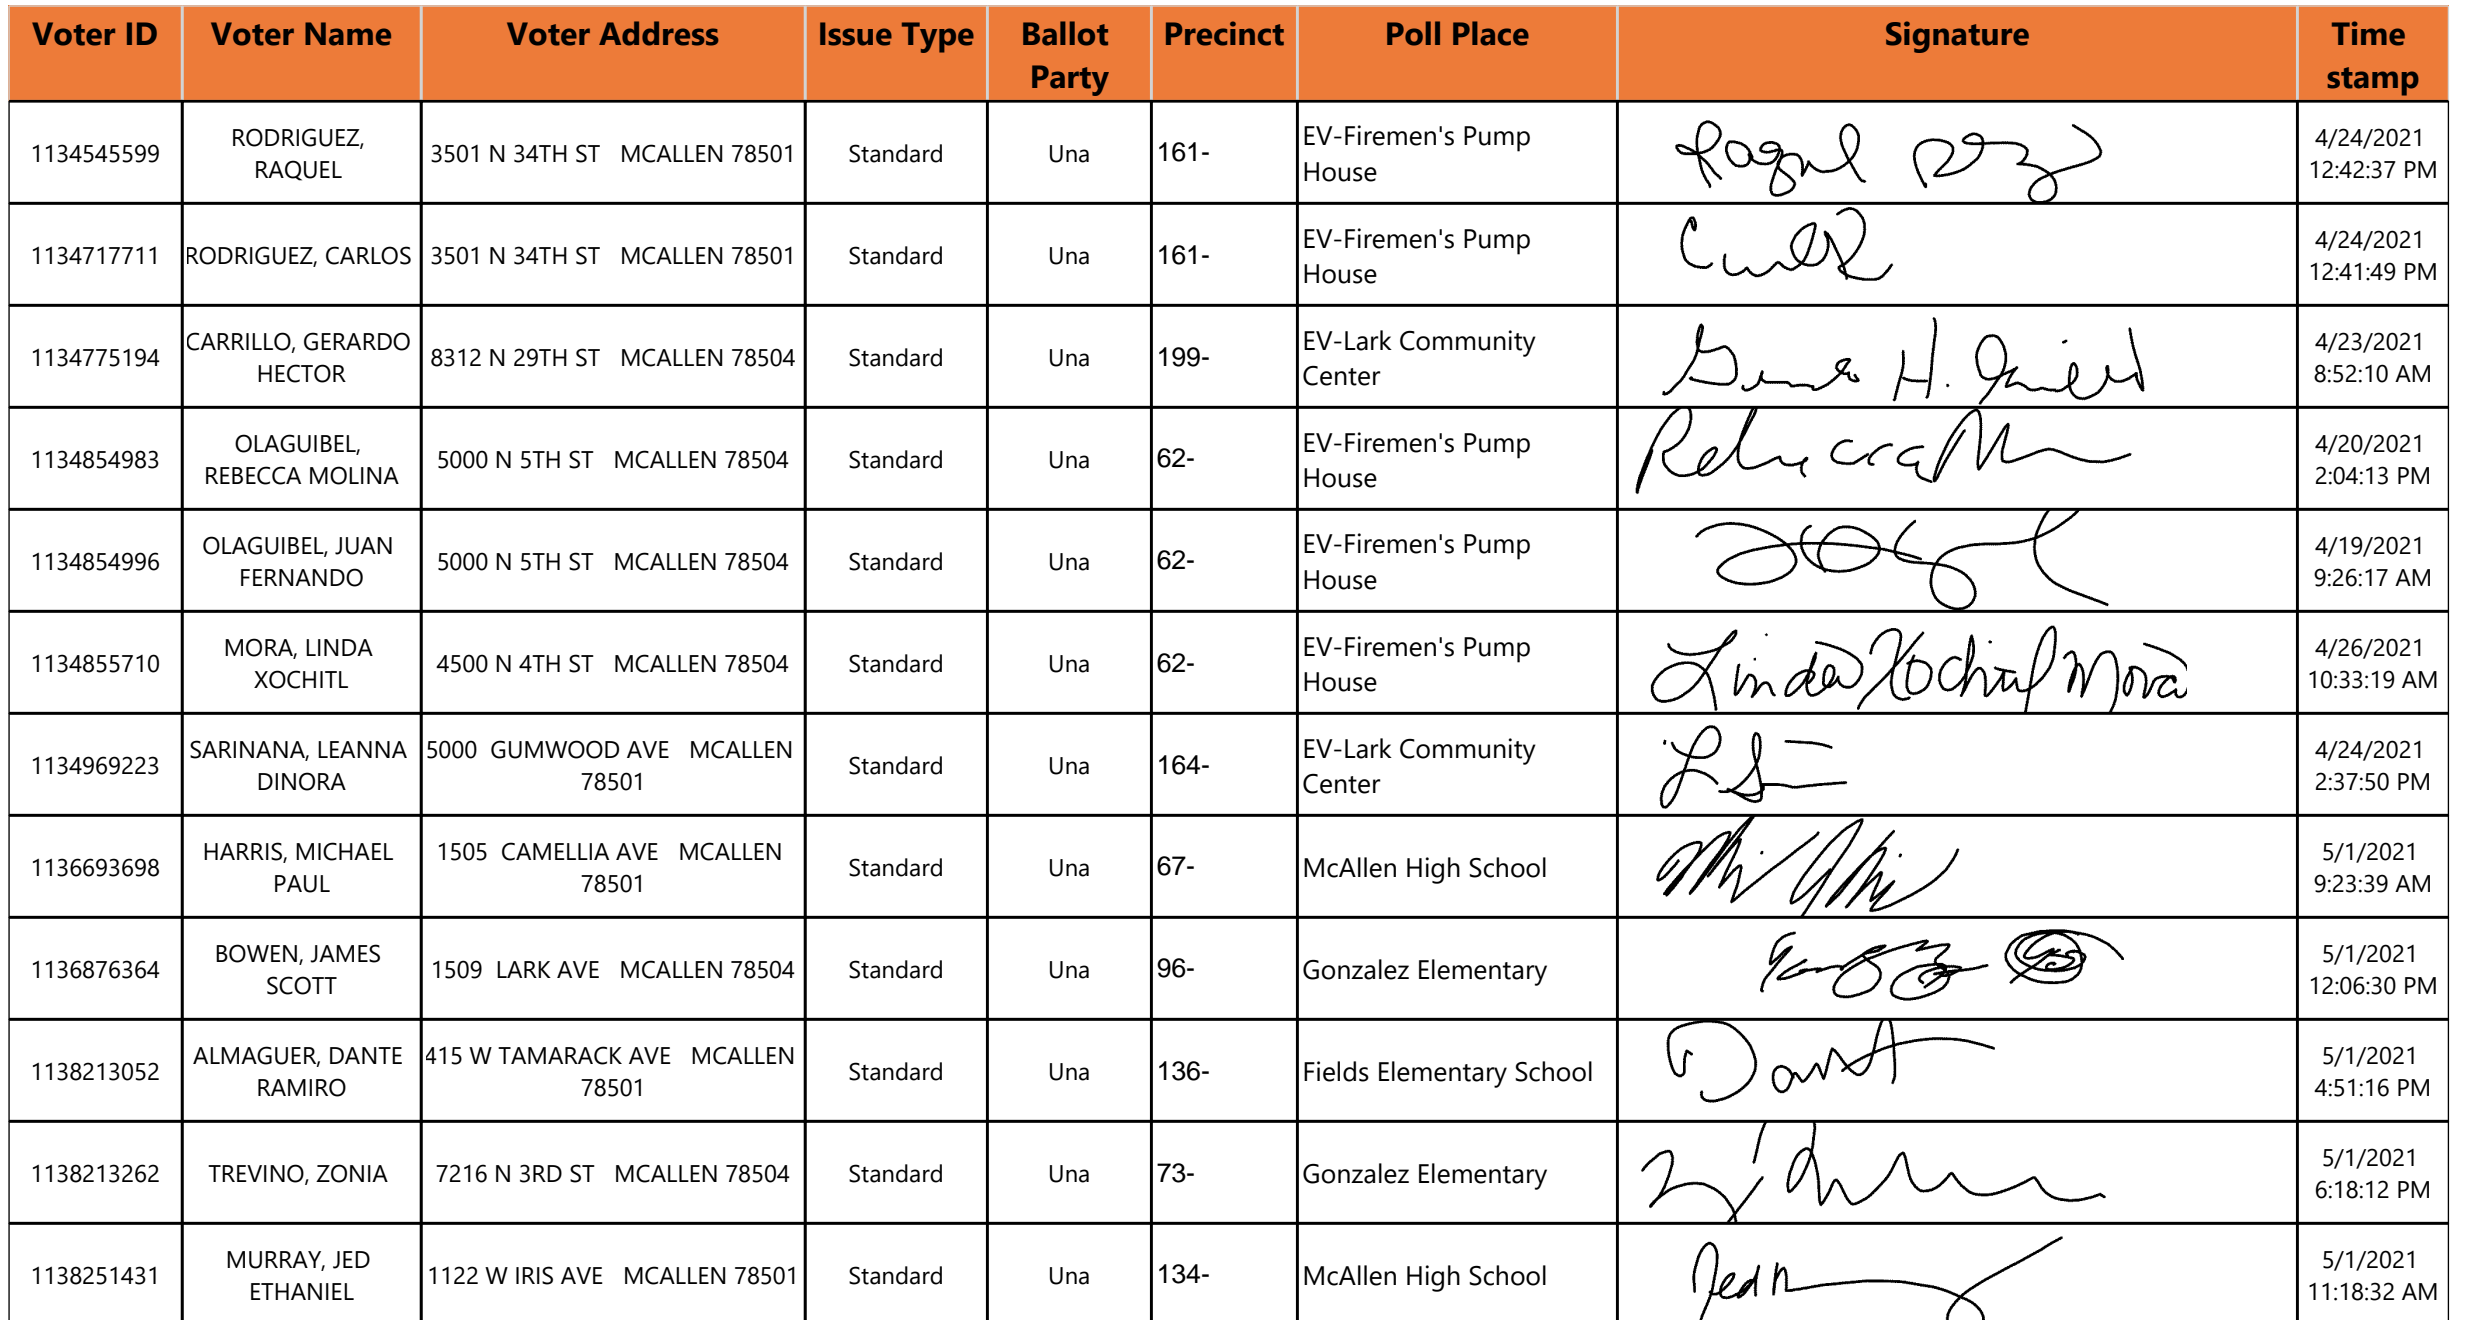 Voter ID Voter Name Voter Address Issue Type Ballot Party Precinct Poll Place Signature Time stamp
1134545599 RODRIGUEZ, RAQUEL 3501 N 34TH ST MCALLEN 78501 Standard Una 161- EV-Firemen's Pump House 4/24/2021 12:42:37 PM
1134717711 RODRIGUEZ, CARLOS 3501 N 34TH ST MCALLEN 78501 Standard Una 161- EV-Firemen's Pump House 4/24/2021 12:41:49 PM
1134775194 CARRILLO, GERARDO HECTOR 8312 N 29TH ST MCALLEN 78504 Standard Una 199- EV-Lark Community Center 4/23/2021 8:52:10 AM
1134854983 OLAGUIBEL, REBECCA MOLINA 5000 N 5TH ST MCALLEN 78504 Standard Una 62- EV-Firemen's Pump House 4/20/2021 2:04:13 PM
1134854996 OLAGUIBEL, JUAN FERNANDO 5000 N 5TH ST MCALLEN 78504 Standard Una 62- EV-Firemen's Pump House 4/19/2021 9:26:17 AM
1134855710 MORA, LINDA XOCHITL 4500 N 4TH ST MCALLEN 78504 Standard Una 62- EV-Firemen's Pump House Linda Xochitl Mora 4/26/2021 10:33:19 AM
1134969223 SARINANA, LEANNA DINORA 5000 GUMWOOD AVE MCALLEN 78501 Standard Una 164- EV-Lark Community Center 4/24/2021 2:37:50 PM
1136693698 HARRIS, MICHAEL PAUL 1505 CAMELLIA AVE MCALLEN 78501 Standard Una 67- McAllen High School 5/1/2021 9:23:39 AM
1136876364 BOWEN, JAMES SCOTT 1509 LARK AVE MCALLEN 78504 Standard Una 96- Gonzalez Elementary 5/1/2021 12:06:30 PM
1138213052 ALMAGUER, DANTE RAMIRO 415 W TAMARACK AVE MCALLEN 78501 Standard Una 136- Fields Elementary School 5/1/2021 4:51:16 PM
1138213262 TREVINO, ZONIA 7216 N 3RD ST MCALLEN 78504 Standard Una 73- Gonzalez Elementary 5/1/2021 6:18:12 PM
1138251431 MURRAY, JED ETHANIEL 1122 W IRIS AVE MCALLEN 78501 Standard Una 134- McAllen High School 5/1/2021 11:18:32 AM